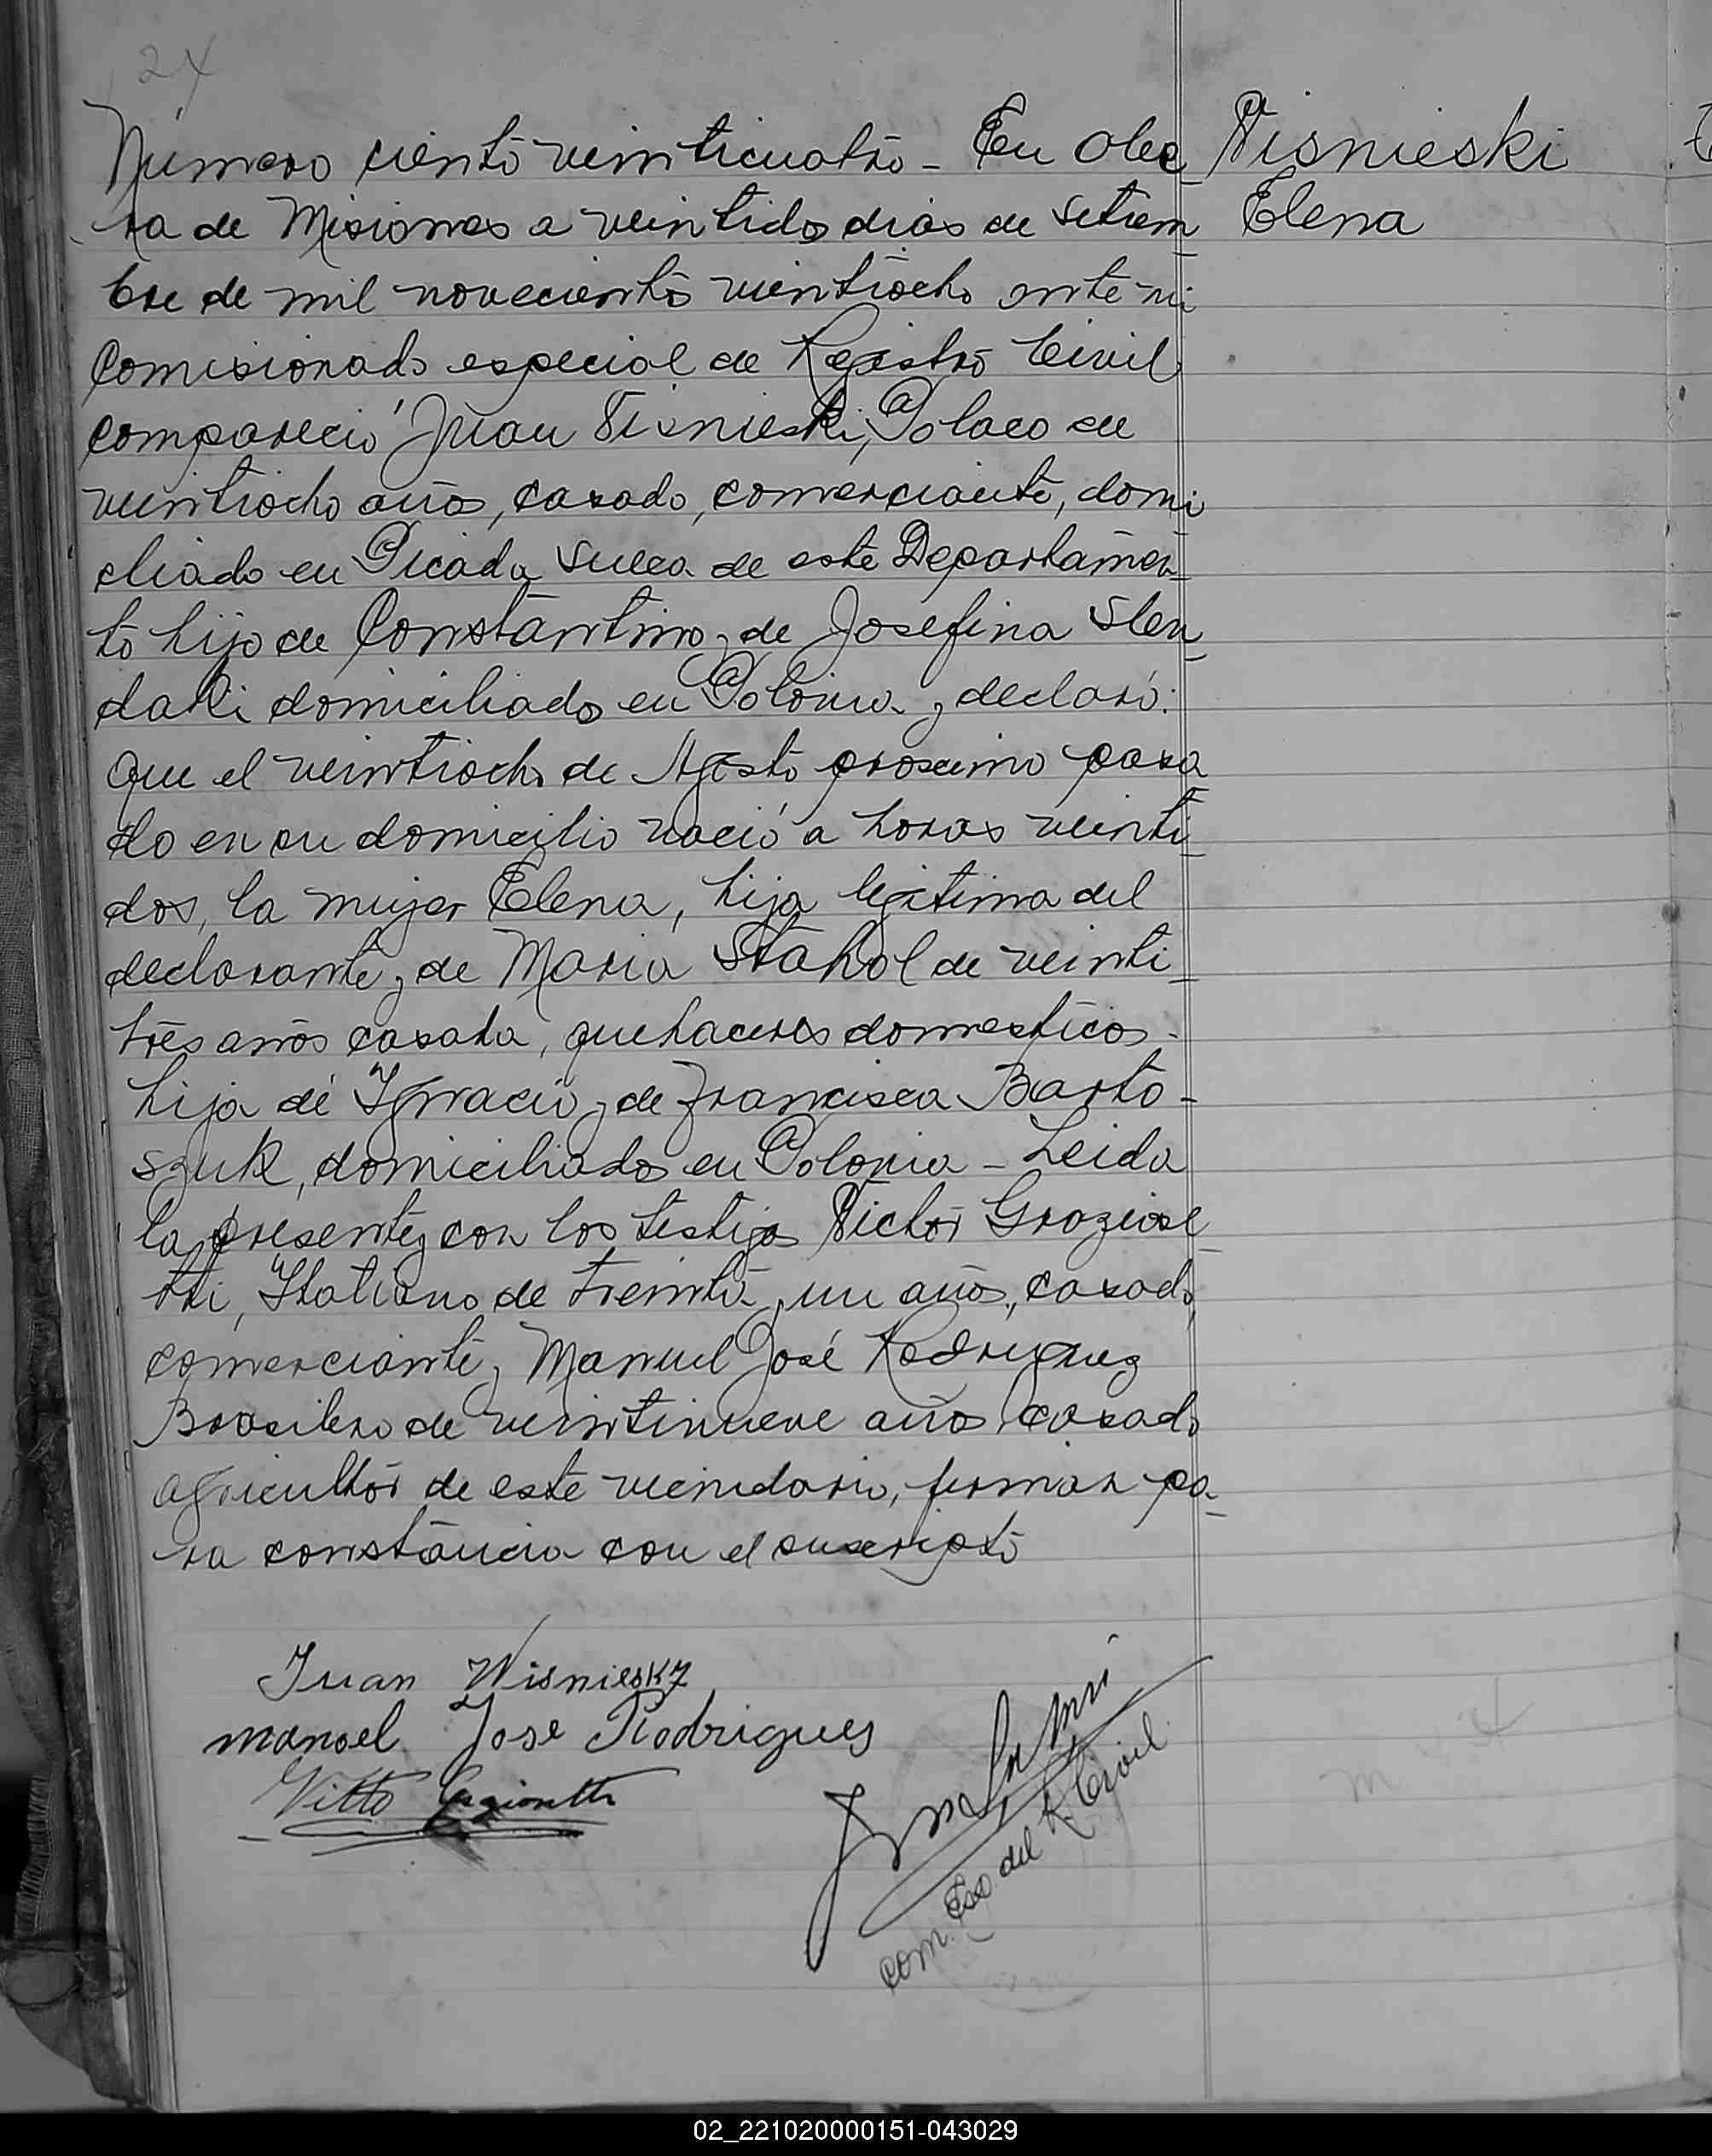 24
Número ciento veinticuatro - En Obe
Visnieski
ra de Misiones a veintidos dias de Setiem
Elena
bre de mil novecientos veintiocho ante mi
Comisionado especial de Registro Civil
compareció Juan Visnieski, Polaco de
veintiocho años, casado, comerciante, domi
cliado en Picada Sueca de este Departamen-
to hijo de Constantino y de Josefina Slen
daki domiciliados en Polonia y declaró:
que el veintiocho de Agosto proximo pasa
do en su domicilio nació a horas veinti
dos, la mujer Elena, hija legitima del
declarante y de Maria Stahol de veinti-
trés años casada, quehaceres domesticos -
hija de Ignacio y de Francisca Barto-
szuk, domiciliados en Polonia - Leida
la presente y con los testigos Victor Grazios
tti, Italiano de treinta y un años, casado
comerciante y Manuel José Rodriguez
Brasilero de veintinueve años casado
agricultor de este vecindario, firman pa-
ra constancia con el suscripto
Juan Wisniesky
manoel Jose Rodrigues
Vitto
com. Esp. del R. Civil
02_221020000151-043029